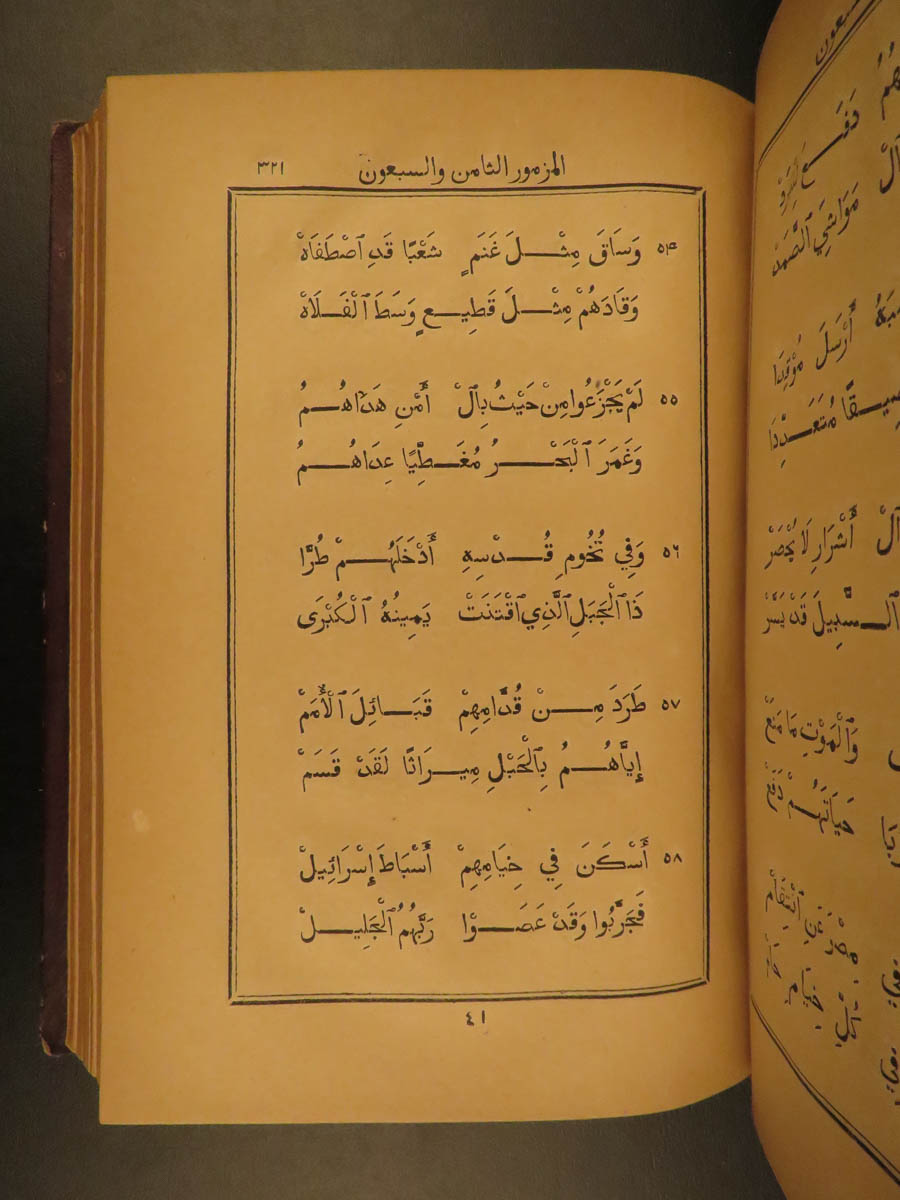 المزمور الثامن والسبعون ٣٢١
٥٤ وَسَاقَ مِثْلَ غَنَمٍ شَعْبًا قَدِ ٱصْطَفَاهْ
وَقَادَهُمْ مِثْلَ قَطِيعٍ وَسَطَ ٱلْفَلَاهْ
٥٥ لَمْ يَجْزَعُوا مِنْ حَيْثُ بِٱلْ أَمْنِ هَدَاهُمُ
وَغَمَرَ ٱلْبَحْرُ مُغَطِّيًا عِدَاهُمُ
٥٦ وَفِي تُخُومِ قُدْسِهِ أَدْخَلَهُمْ طُرَّا
ذَا ٱلْجَبَلِ ٱلَّذِي ٱقْتَنَتْ يَمِينُهُ ٱلْكُبْرَى
٥٧ طَرَدَ مِنْ قُدَّامِهِمْ قَبَائِلَ ٱلْأُمَمْ
إِيَّاهُمُ بِٱلْحَبْلِ مِيرَاثًا لَقَدْ قَسَمْ
٥٨ أَسْكَنَ فِي خِيَامِهِمْ أَسْبَاطَ إِسْرَائِيلْ
فَجَرَّبُوا وَقَدْ عَصَوْا رَبَّهُمُ ٱلْجَلِيلْ
٤١
دَفَعَ لِلْبَرَدْ
مَوَاشِيَ ٱلصَّمَدْ
أَرْسَلَ مُوْقِدَا
مُتَعَدِّدَا
أَشْرَارِ لَا يُحْصَرْ
ٱلسَّبِيلَ قَدْ يَسَّرْ
وَٱلْمَوْتِ مَا مَنَعْ
حَيَاتَهُمْ دَفَعْ